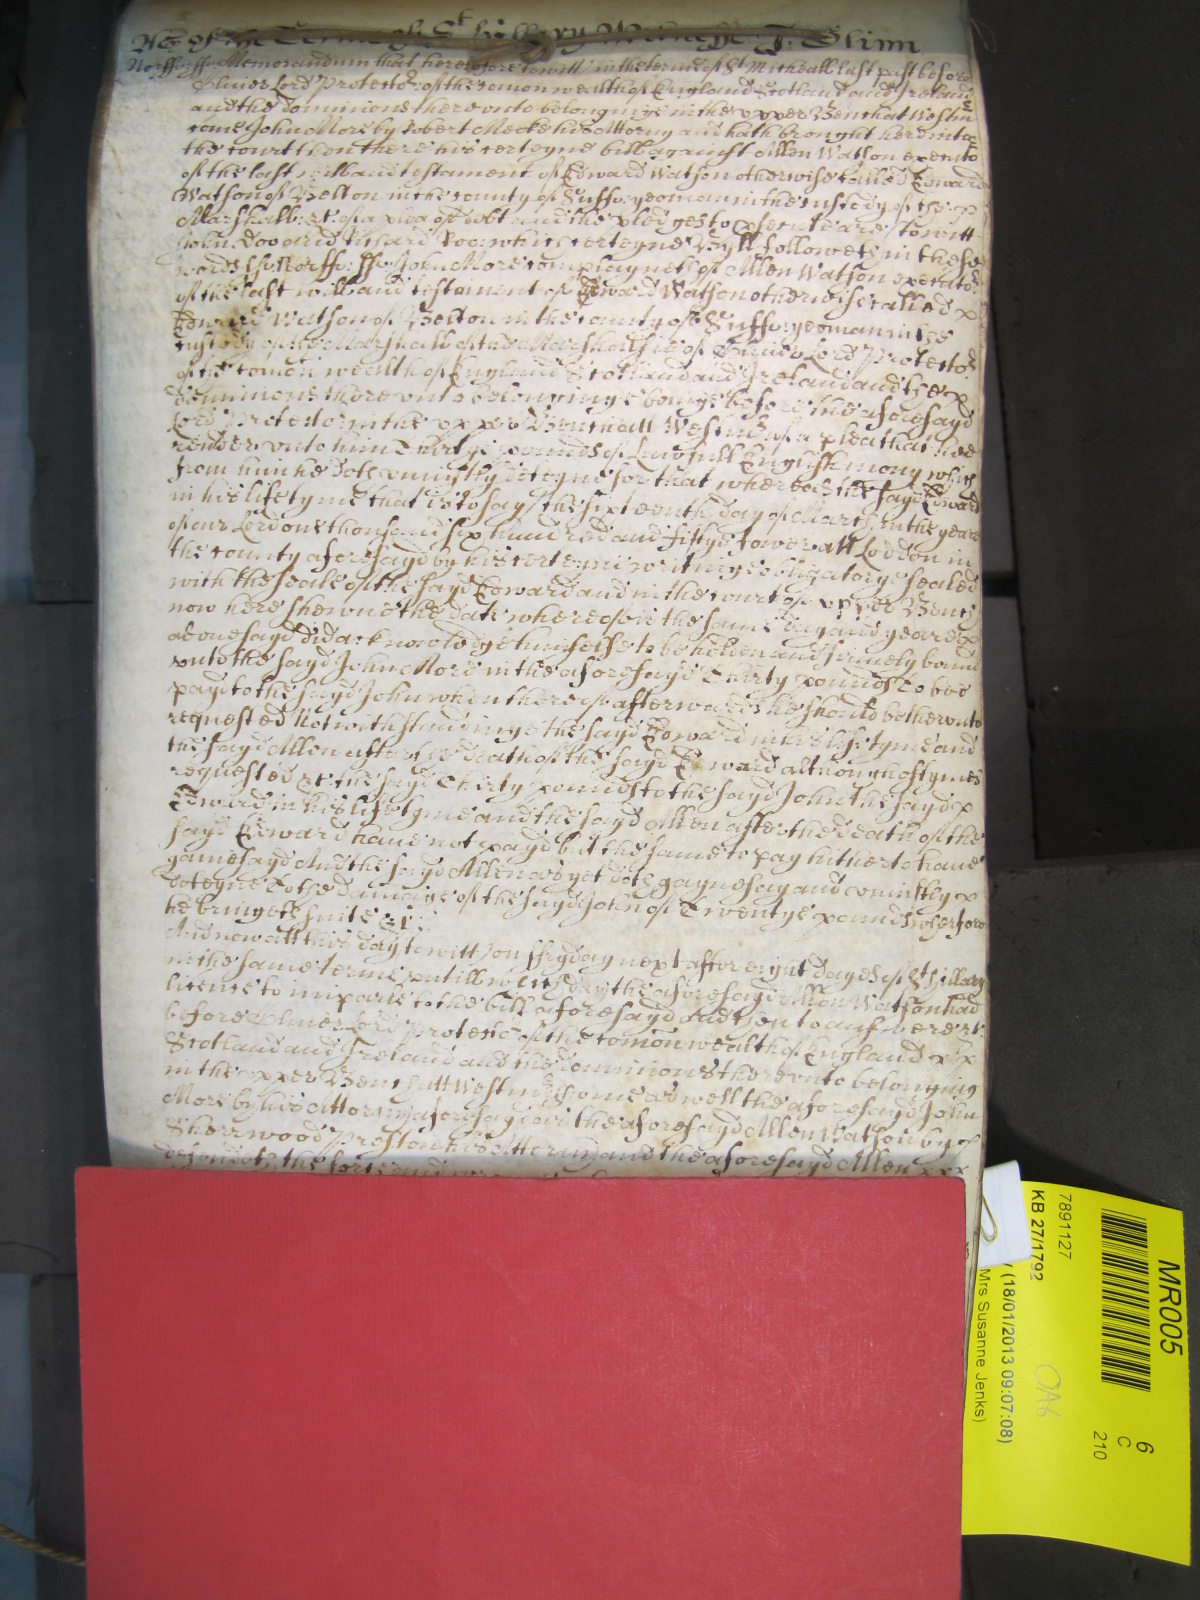 As of the Terme of St hillary Witnesse J: Glinn
Norff: ss: Memorandum that heretofore to witt in the terme of St Michaell last past before
Oliver Lord Protector of the comon wealth of England Scotland and Ireland
and the dominions there unto belonginge in the upper Bench at Westm
came John More by Robert Meeke his Attorny and hath brought here into
the court then there his certeyne bill against Allen Watson executor
of the last will and testament of Edward Watson otherwise called Edward
Watson of Belton in the county of Suff yeoman in the custody of the
Marshall &c of a plea of debt and the pledges to prosecute are to witt
John Doo and Richard Roo: which certeyne Byll followeth in these
words ss: Norff: ss: John More complayneth of Allen Watson executor
of the last will and testament of Edward Watson otherwise called
Edward Watson of Belton in the county of Suff: yeoman in the
custody of the Marshall of the Marshalsie of Oliver Lord Protector
of the comon wealth of England Scotland and Ireland and the
dominions thereunto belonginge beinge before the aforesayd
Lord Protector in the upper Bench att Westm of a plea that hee
render unto him Thirtye pounds of Lawfull English mony which
from him he doth uniustly deteyne for that whereas the sayd Edward
in his life tyme that is to say the sixteenth day of March in the yeare
of our Lord one thousand six hundred and fiftye fower att London in
the county aforesayd by his certeyne writinge obligatorye sealed
with the seale of the sayd Edward and in the court of upper Bench
now here shewne the date whereof is the same day and yeare
abovesayd did acknowledge himselfe to be holden and firmely bound
unto the sayd John More in the aforesayd Thirty pounds to bee
payd to the sayd John when thereof afterwards he should be thereunto
requested Notwithstandinge the sayd Edward in his life tyme and
the sayd Allen after the death of the sayd Edward although oftymes
requested &c the sayd Thirty pounds to the sayd John the sayd
Edward in his life tyme and the sayd Allen after the death of the
sayd Edward have not payd but the same to pay hitherto have
gainesayd And the sayd Allen as yet doth gaynesay and uniustly
deteyne To the damage of the sayd John of Twentye pounds wherfore
he bringeth suite &c:
And now att this day to witt on fryday next after eight dayes of St hillary
in the same terme untill which day the aforesayd Allen Watson had
licence to imparle to the bill aforesayd and then to answere &c
before Oliver Lord Protector of the comon wealth of England
Scotland and Ireland and the dominions thereunto belonging
in the upper Bench att Westm come as well the aforesayd John
More by his Attorny aforesayd as the aforesayd Allen Watson by
Sherwood Preston his Attorny and the aforesayd Allen
defendeth the force and
MR005
6
C
210
7891127
KB 27/1792
(18/01/2013 09:07:08)
Mrs Susanne Jenks)